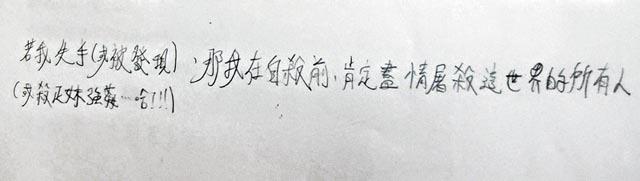 若我失手(或被發現)，那我在自殺前，肯定盡情屠殺這世界的所有人
(或殺正妹強姦…哈!!!)